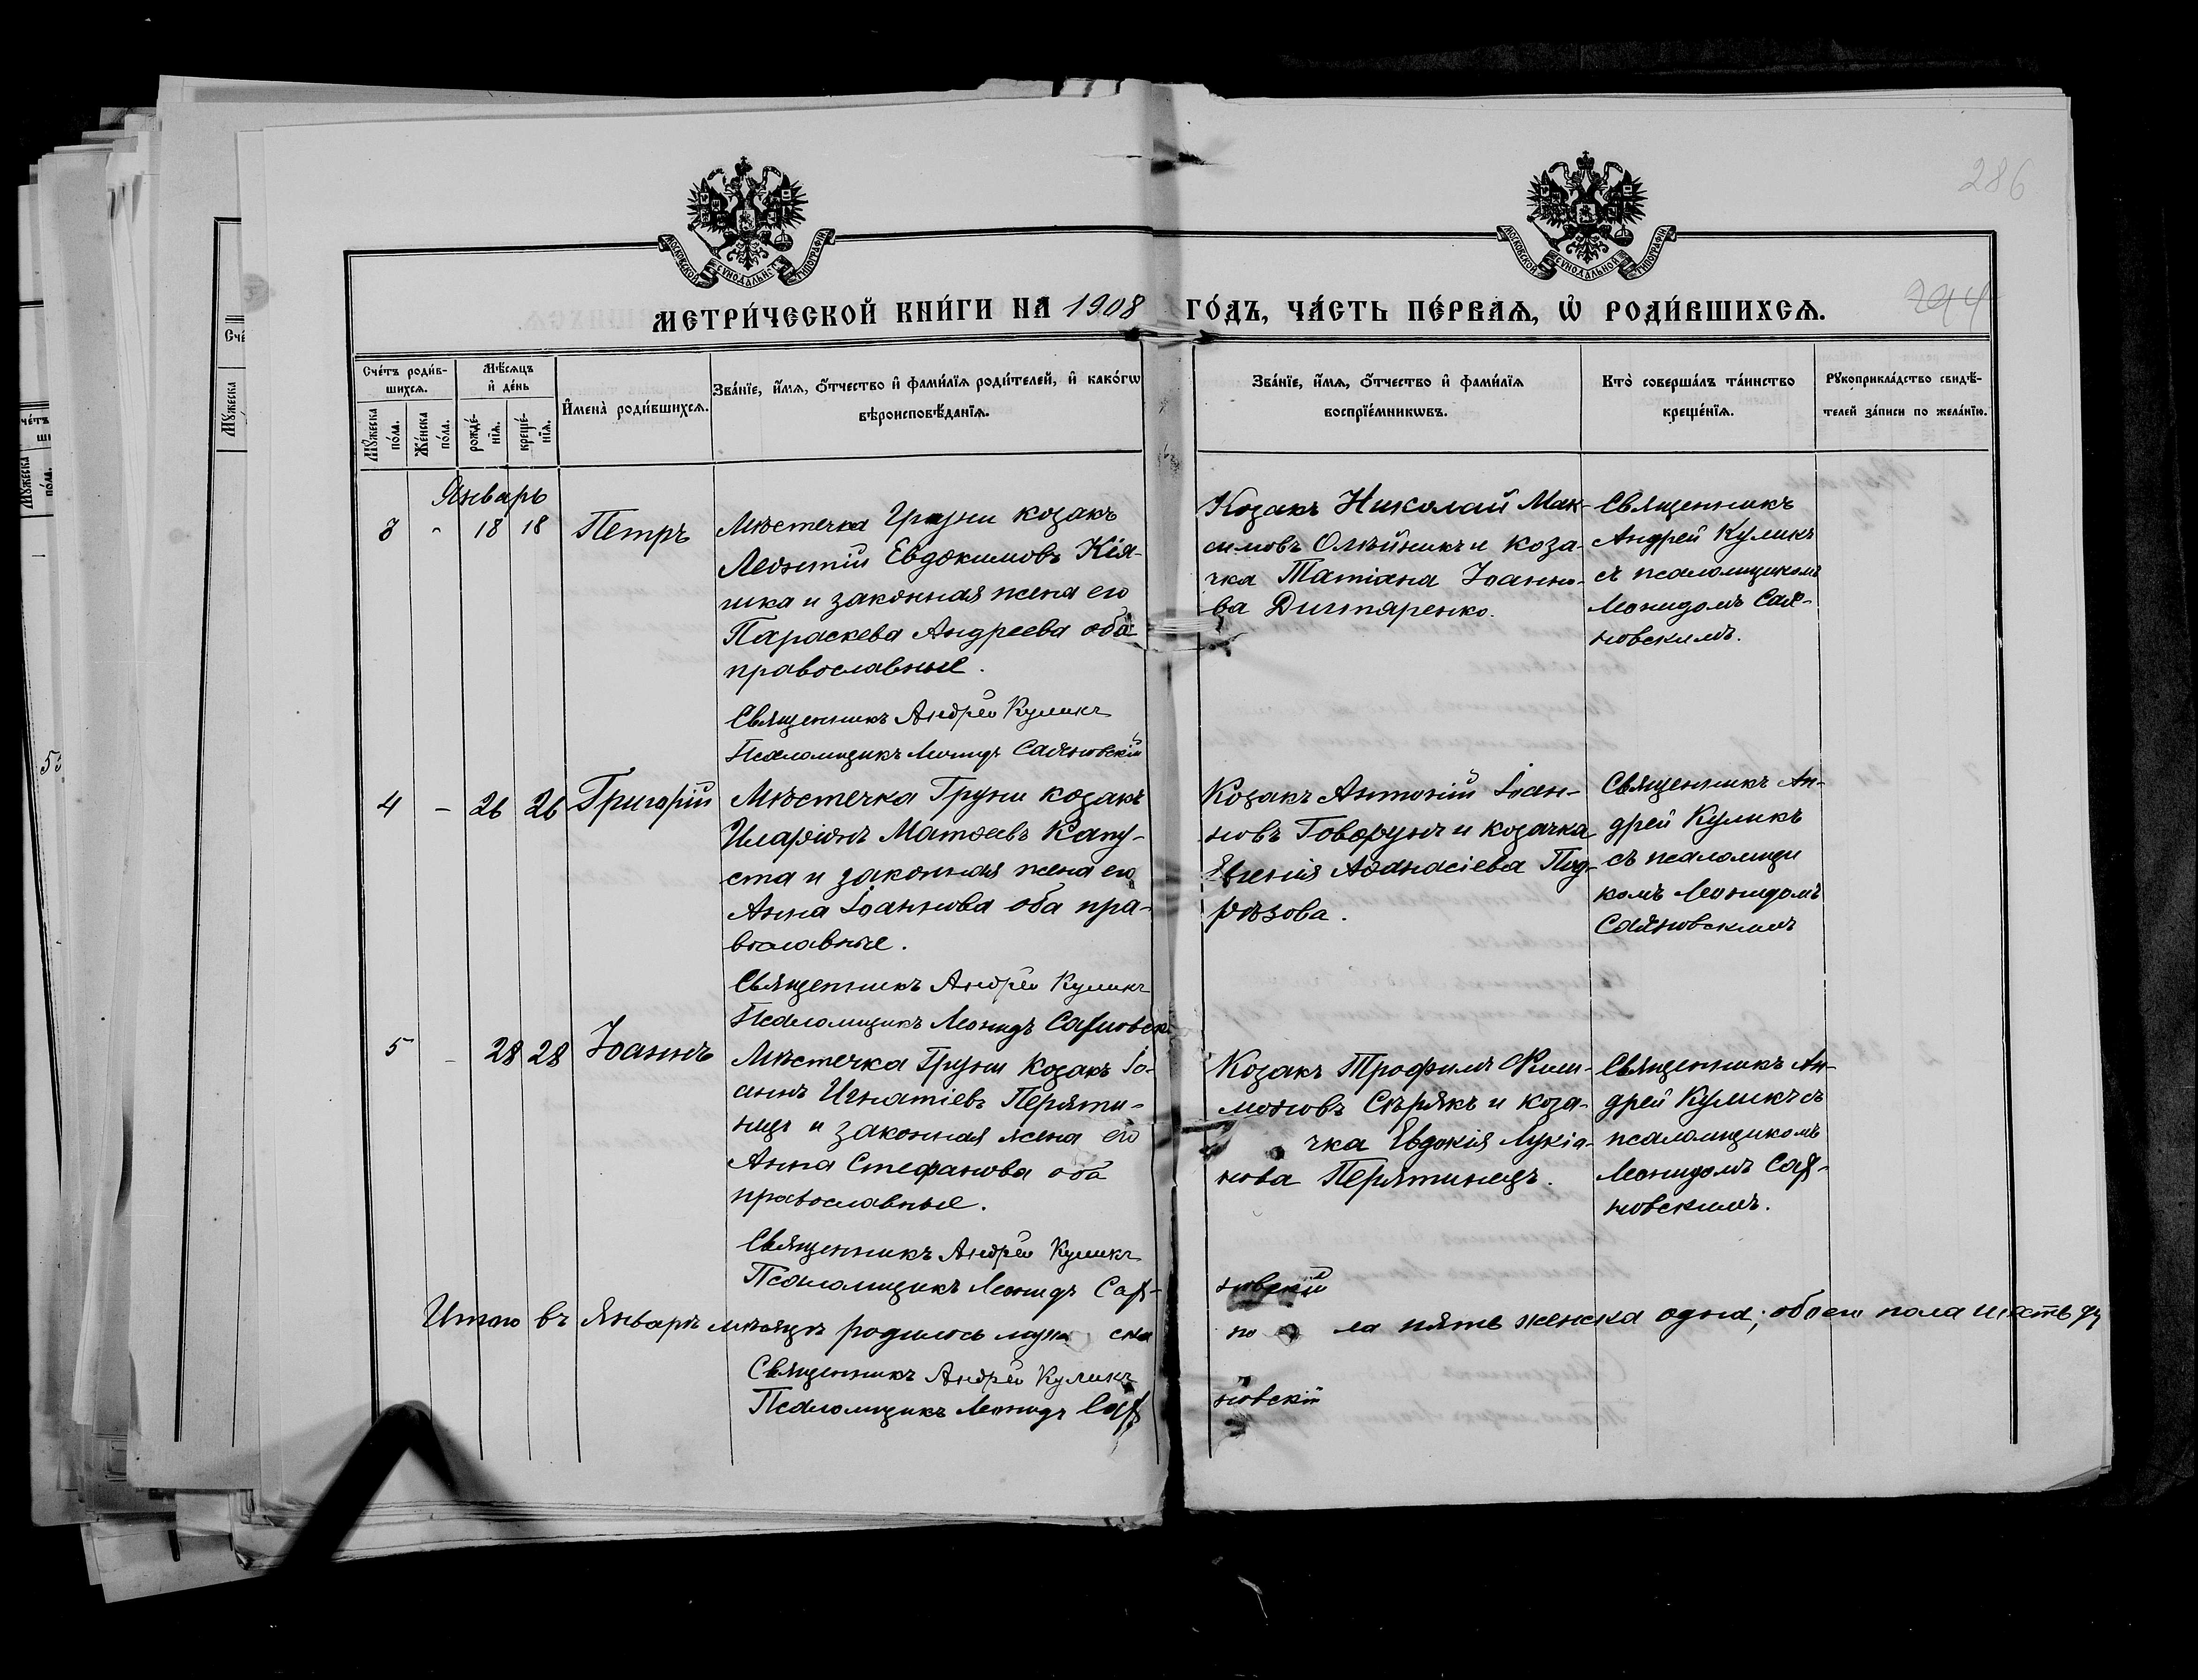 286
МОСКОВСКОЙ СѴНОДАЛЬНОЙ ТИПОГРАФІИ
МОСКОВСКОЙ СѴНОДАЛЬНОЙ ТИПОГРАФІИ
МЕТРИ́ЧЕСКОЙ КНИ́ГИ НА 1908 ГО́ДЪ, ЧА́СТЬ ПЕ́РВАѦ, Ѡ҆ РОДИ́ВШИХСѦ.
294
Сче́тъ роди́в-
шихсѧ.
Мꙋ́жеска
по́ла.
Же́нска
по́ла.
Мѣ́сѧцъ
и҆ де́нь
рожде́-
нїѧ.
креще́-
нїѧ.
И҆мена̀ роди́вшихсѧ.
Зва́нїе, и҆́мѧ, ѻ҆́тчество и҆ фами́лїѧ роди́телей, и҆ како́гѡ
вѣроисповѣ́данїѧ.
Зва́нїе, и҆́мѧ, ѻ҆́тчество и҆ фами́лїѧ
воспрїе́мникѡвъ.
Кто̀ соверша́лъ та́инство
креще́нїѧ.
Рꙋкоприкла́дство свидѣ́-
телей за́писи по жела́нїю.
Январь
3 - 18 18 Петръ
Мѣстечка Груни козакъ
Леонтій Евдокимовъ Кія-
шка и законная жена его
Параскева Андреева оба
православные.
Священникъ Андрей Куликъ
Псаломщикъ Леонидъ Саяновскій
Козакъ Николай Мак-
симовъ Олѣйникъ и коза-
чка Татіана Іоанно-
ва Дигтяренко.
Священникъ
Андрей Куликъ
съ псаломщикомъ
Леонидомъ Сая-
новскимъ.
4 - 26 26 Григорій
Мѣстечка Груни козакъ
Иларіонъ Матѳеевъ Капу-
ста и законная жена его
Анна Іоаннова оба пра-
вославные.
Священникъ Андрей Куликъ
Псаломщикъ Леонидъ Саяновск
Козакъ Антоній Іоан-
новъ Говорунъ и козачка
Евгенія Аѳанасіева Под-
рѣзова.
Священникъ Ан-
дрей Куликъ
съ псаломщи
комъ Леонидомъ
Саяновскимъ
5 - 28 28 Іоаннъ
Мѣстечка Груни козакъ Іо-
аннъ Игнатіевъ Перяти-
нецъ и законная жена его
Анна Стефанова оба
православные.
Священникъ Андрей Куликъ
Псаломщикъ Леонидъ Сая-
новскій
Козакъ Трофимъ Фили-
моновъ Сѣрякъ и коза-
чка Евдокія Лукіа-
нова Перятинецъ.
Священникъ Ан-
дрей Куликъ съ
псаломщикомъ
Леонидомъ Сая-
новскимъ.
Итого въ Январѣ мѣсяцѣ родилось муже ска по ла пять женска одна; обоего пола шесть
Священникъ Андрей Куликъ
Псаломщикъ Леонидъ Сая
новскій